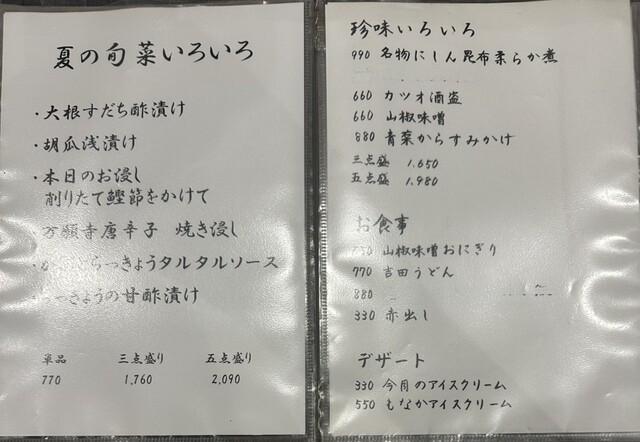 夏の旬菜いろいろ
・大根すだち酢漬け
・胡瓜浅漬け
・本日のお浸し
削りたて鰹節をかけて
万願寺唐辛子 焼き浸し
らっきょうタルタルソース
っきょうの甘酢漬け
単品 三点盛り 五点盛り
770 1,760 2,090
珍味いろいろ
990 名物にしん昆布柔らか煮
660 カツオ酒盗
660 山椒味噌
880 青菜からすみかけ
三点盛 1.650
五点盛 1.980
お食事
山椒味噌おにぎり
770 吉田うどん
880
330 赤出し
デザート
330 今月のアイスクリーム
550 もなかアイスクリーム